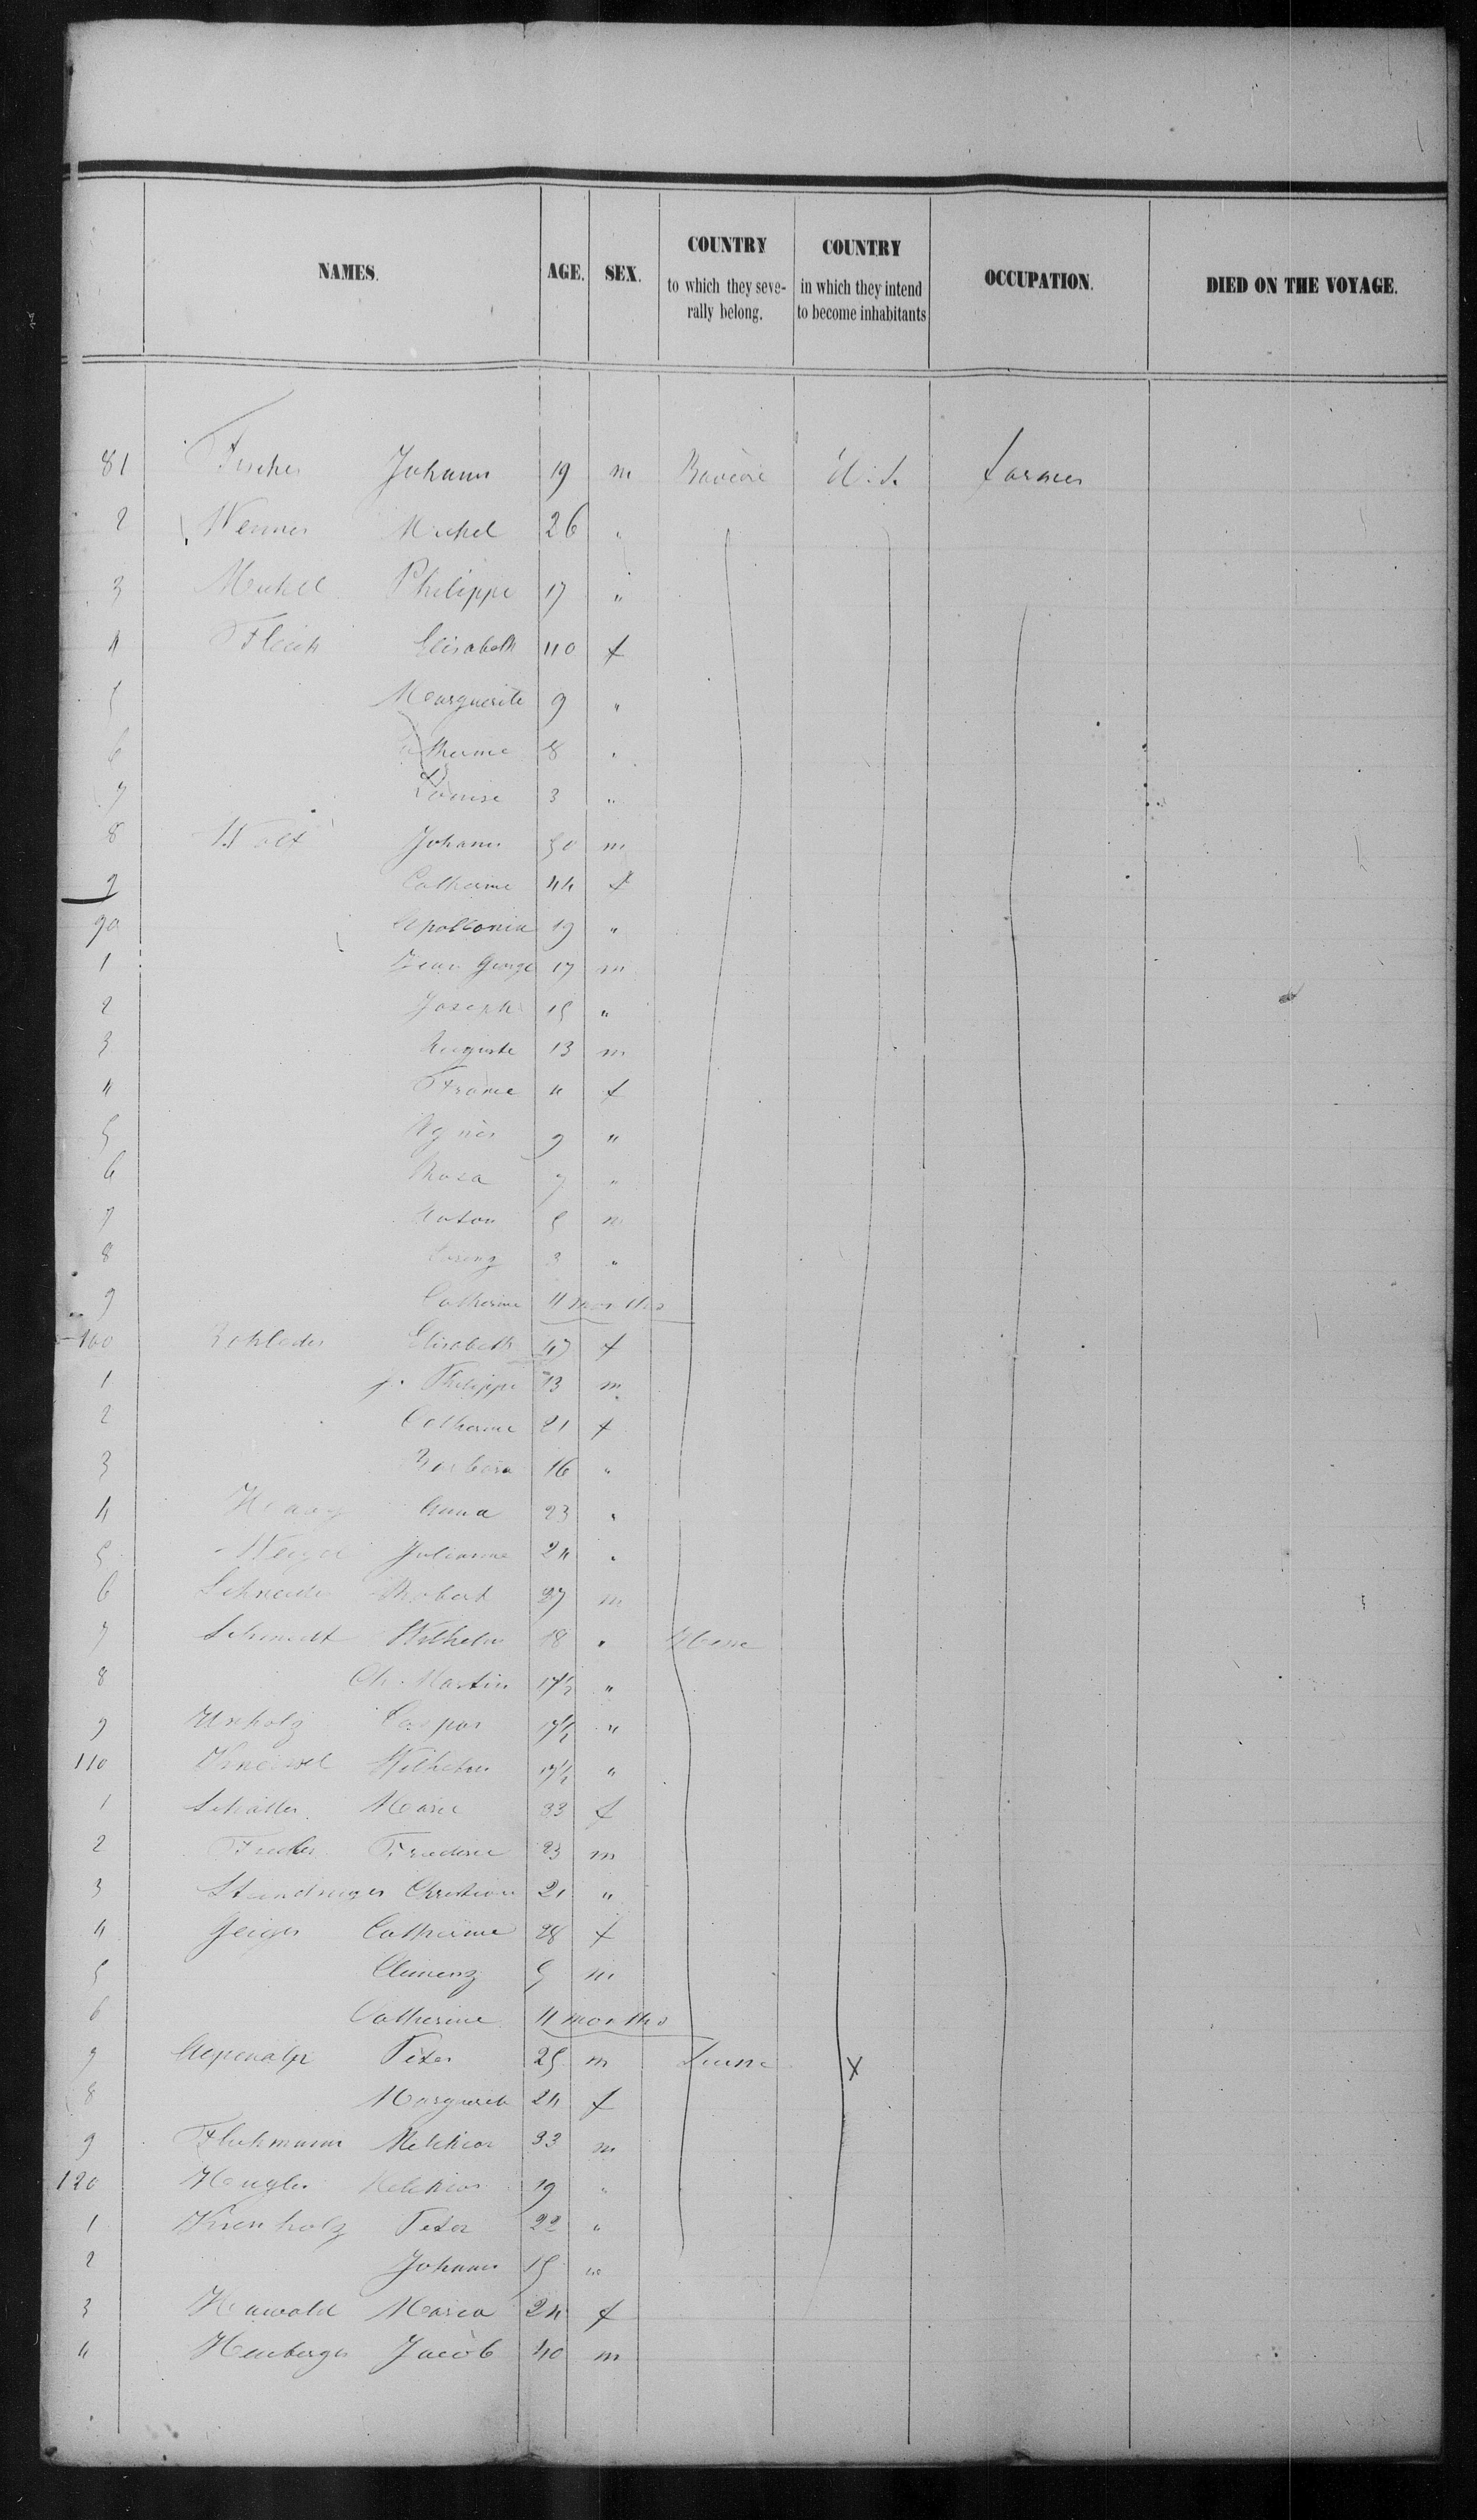 NAMES. AGE. SEX. COUNTRY to which they seve-rally belong. COUNTRY in which they intend to become inhabitants OCCUPATION. DIED ON THE VOYAGE.
81 Fischer Johann 19 m Bavière U.S. farmer
2 Werner Michel 26 "
3 Michel Philippe 17 "
4 Fleck Elisabeth 40 f
5 Marguerite 9 "
6 Catherine 8 "
7 Louise 3 "
8 Wolf Johann 50 m
9 Catherine 44 f
90 Apollonia 19 "
1 Jean George 17 m
2 Joseph 15 "
3 Auguste 13 m
4 f
5 Agnès 9 "
6 Rosa 7 "
7 Anton 5 m
8 3 "
9 Catherine 4 months
100 Elisabeth 47 f
1 Philippe 13 m
2 Catherine 21 f
3 Barbara 16 "
4 Anna 23 "
5 Julianne 24 "
6 Schneider Robert 27 m
7 Schmidt Wilhelm 18 " Hesse
8 Ch. Martin 17½ "
9 Caspar 17½ "
110 Wilhelm 17½ "
1 Marie 33 f
2 23 m
3 Christian 21 "
4 Geiger Catherine 28 f
5 Clemenz 5 m
6 Catherine 4 months
7 Peter 25 m Suisse X
8 Marguerite 24 f
9 Melchior 33 m
120 Melchior 19 "
1 Kienholz Peter 22 "
2 Johann 15 "
3 Maria 24 f
4 Heuberger Jacob 40 m